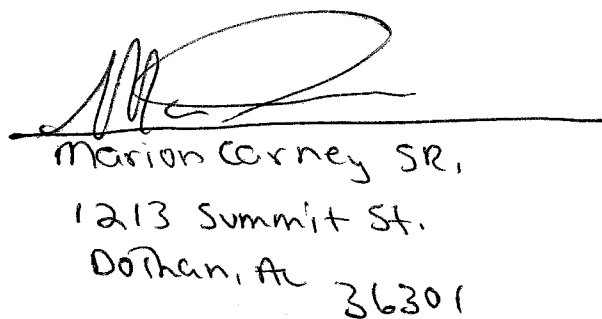 Marion Carney SR,
1213 Summit St.
Dothan, AL
36301